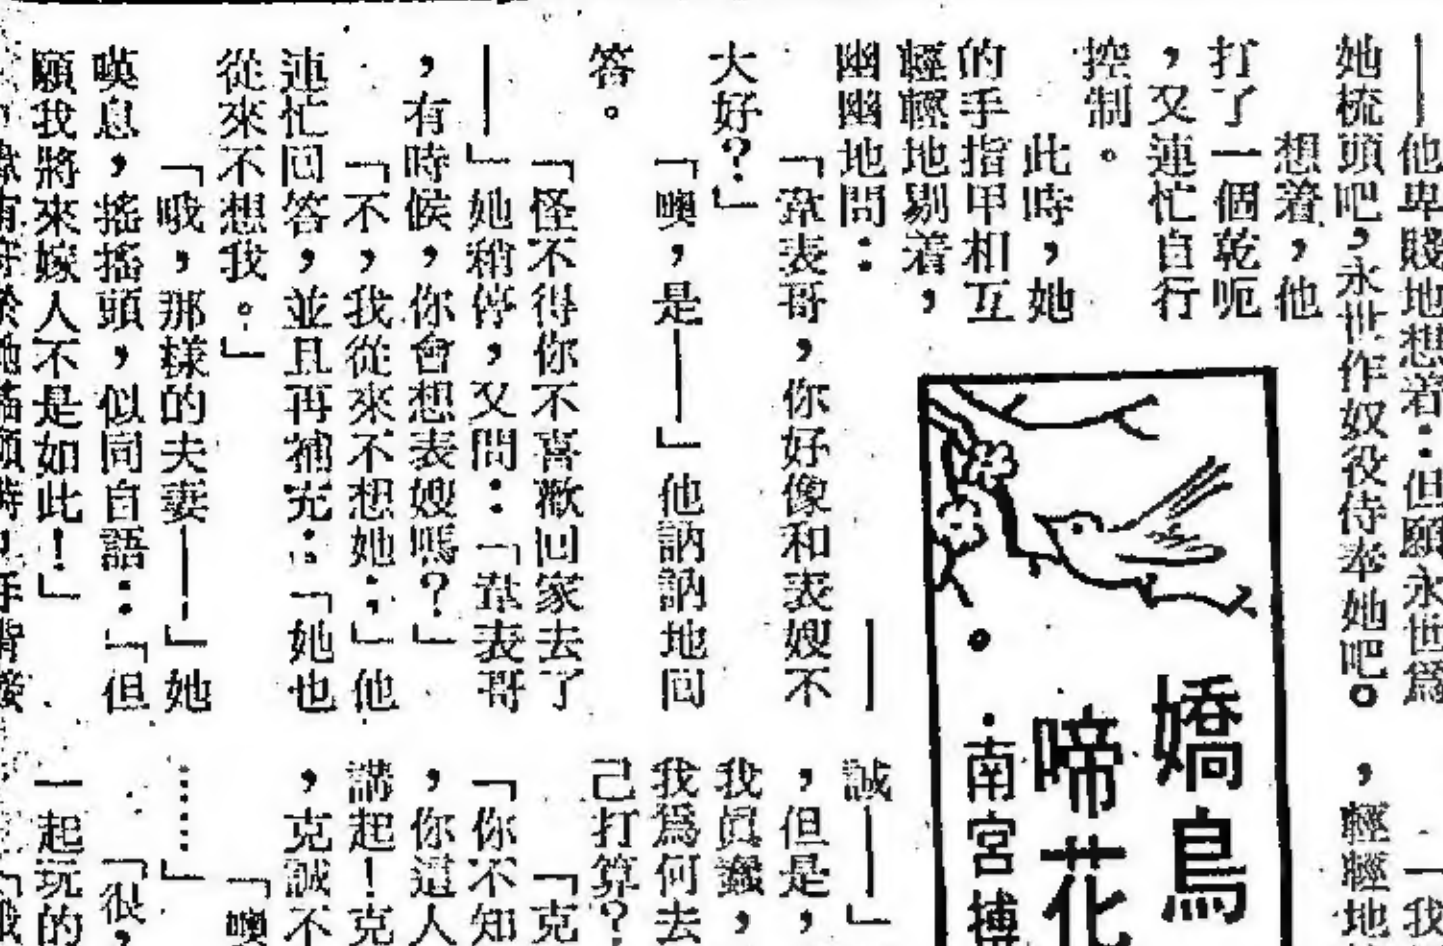 ——他卑賤地想着：但願永世爲
她梳頭吧，永世作奴役侍奉她吧。
想着，他
打了一個乾呃
，又連忙自行
控制。
此時，她
的手指甲相互
輕輕地剔着，
幽幽地問：
「韋表哥，你好像和表嫂不
大好？」
「噢，是——」他訥訥地回
答。
「怪不得你不喜歡回家去了
——」她稍停，又問：「韋表哥
，有時候，你會想表嫂嗎？」
「不，我從來不想她；」他
連忙回答，並且再補充：「她也
從來不想我。」
「哦，那樣的夫妻——」她
嘆息，搖搖頭，似同自語：「但
願我將來嫁人不是如此！」
嬌鳥
啼花
·南宮搏
「我
，輕輕地
——
誠——」
，但是，
我眞蠢，
我爲何去
己打算？
「克
「你不知
，你這人
講起！克
，克誠不
「噢
……」
「很，
一起玩的